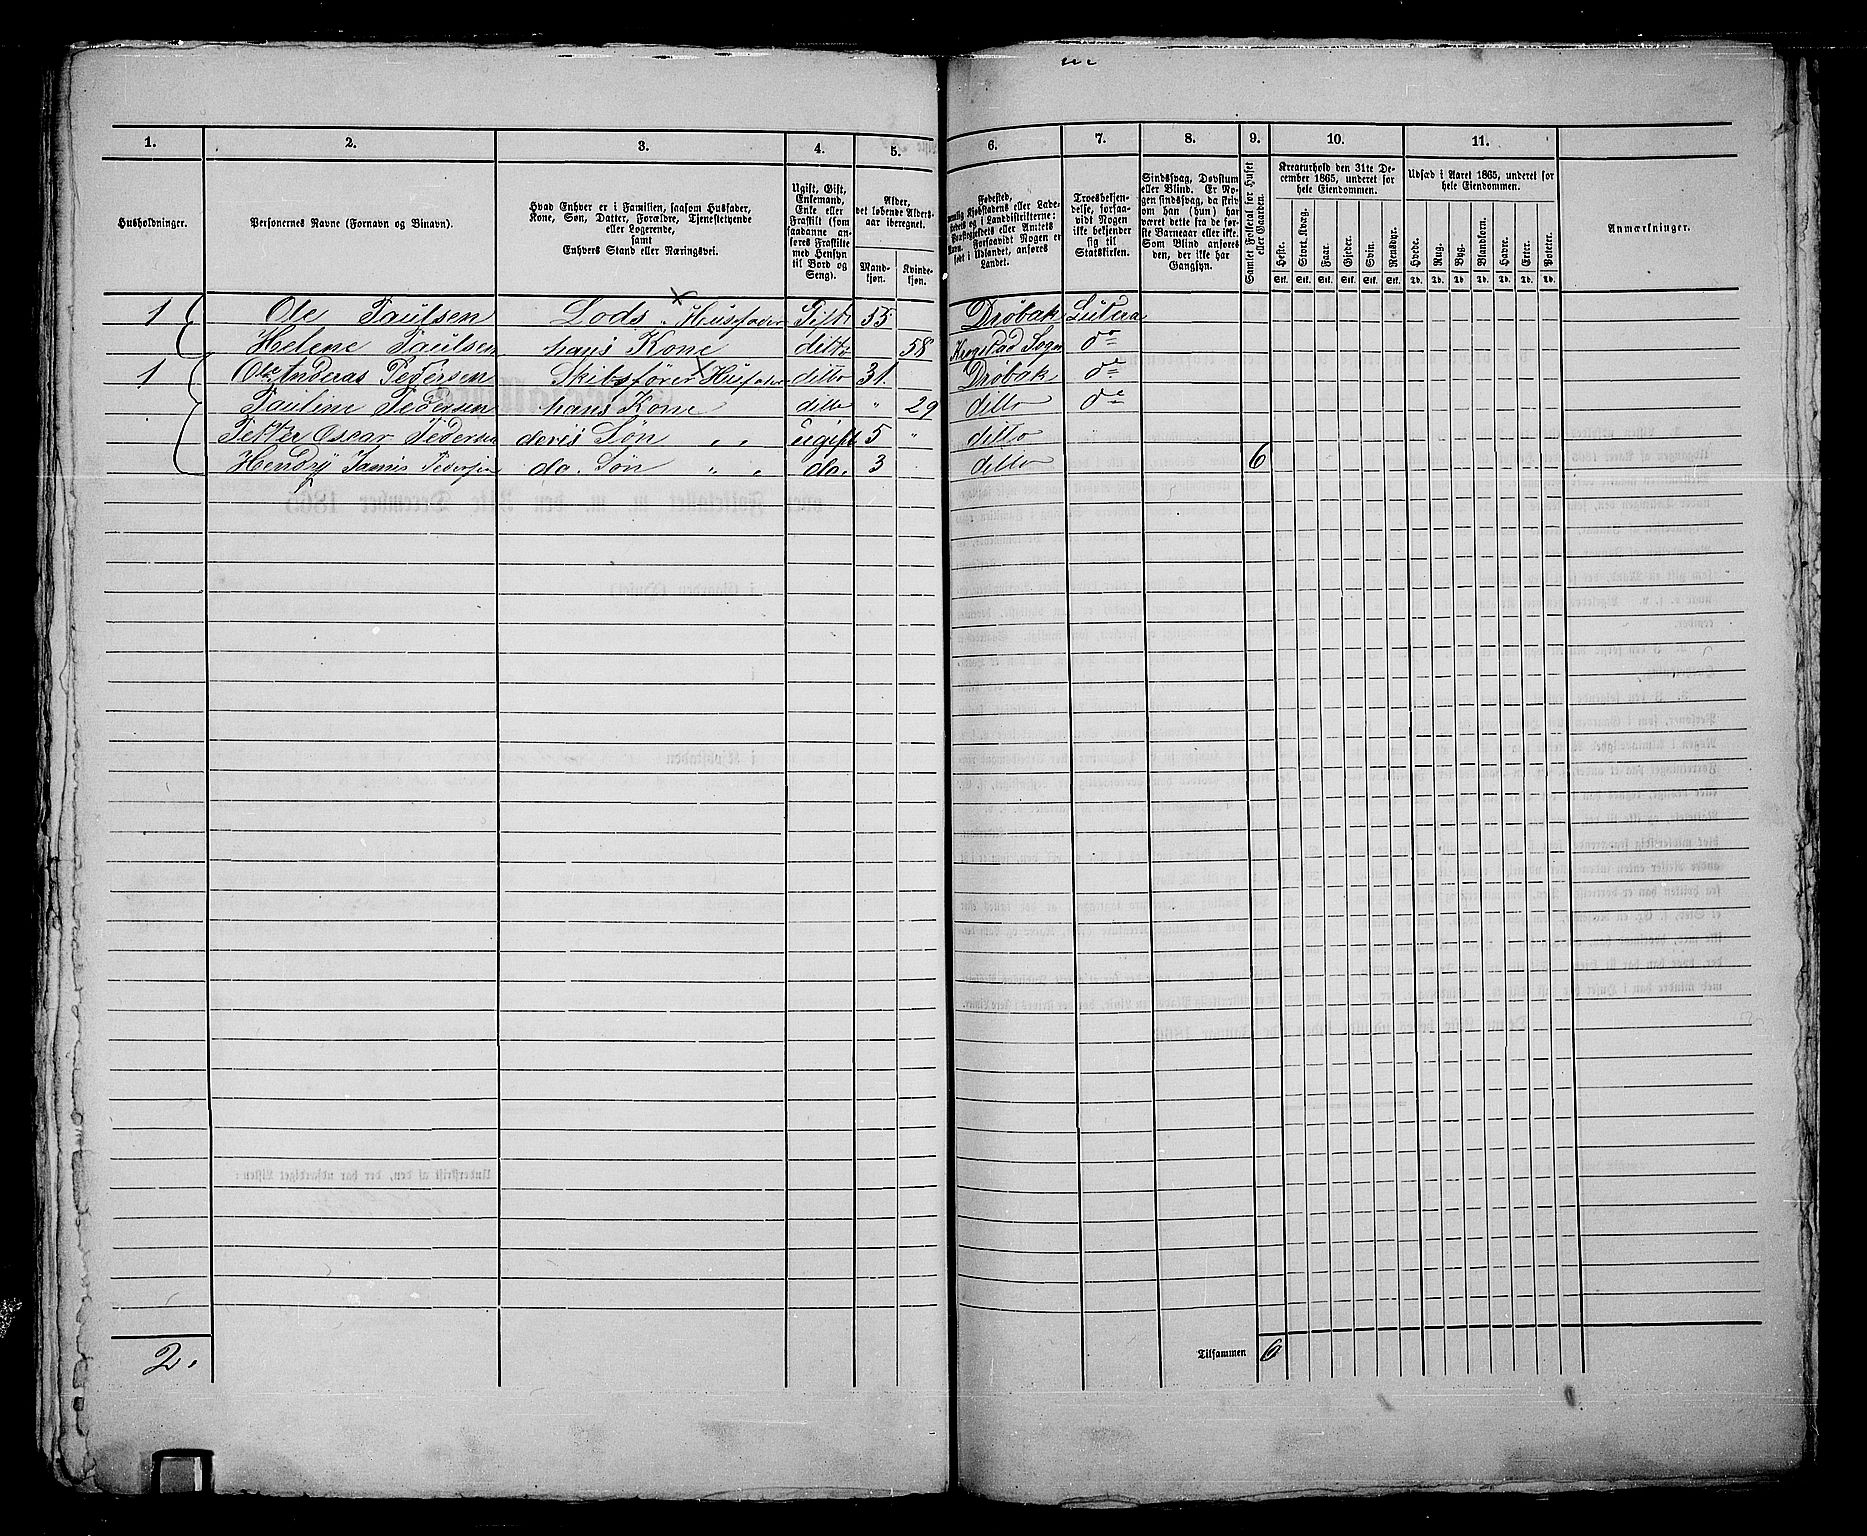 1. 2. 3. 4. 5. 6. 7. 8. 9. 10. 11.
Husholdninger.
Personernes Navne (Fornavn og Binavn).
Hvad Enhver er i Familien, saasom Husfader,
Kone, Søn, Datter, Forældre, Tjenestetyende
eller Logerende,
samt
Enhvers Stand eller Næringsvei.
Ugift, Gift,
Enkemand,
Enke eller
Fraskilt (som
saadanne an-
føres Fraskilte
med Hensyn
til Bord og
Seng).
Alder,
det løbende Alders-
aar iberegnet.
Mand-
kjøn.
Kvinde-
kjøn.
Fødested,
Kjøbstadens eller Lade-
i Landdistrikterne:
eller Amtets
Forsaavidt Nogen er
født i Udlandet, anføres
Landet.
Troesbekjen-
delse, forsaa-
vidt Nogen
ikke bekjender
sig til
Statskirken.
Sindssvag, Døvstum
eller Blind. Er No-
gen sindssvag, da skriv
om han (hun) har
været dette fra de før-
ste Barneaar eller ikke.
Som Blind anføres
den, der ikke har
Gangsyn.
Samlet Folketal for Huset
eller Gaarden.
Kreaturhold den 31te De-
cember 1865, underet for
hele Eiendommen.
Heste. Stort Kvæg. Faar. Gjeder. Svin. Rensdyr.
Stk. Stk. Stk. Stk. Stk. Stk.
Udsæd i Aaret 1865, underet for
hele Eiendommen.
Hvede. Rug. Byg. Blandkorn. Havre. Erter. Poteter.
Td. Td. Td. Td. Td. Td. Td.
Anmærkninger.
1 Ole Paulsen Lods Husfader Gift 55 Drøbak Lütera
Helene Paulsen hans Kone ditto 58 Krogstad Sogn do
1 Ole Andreas Pedersen Skibsfører Husfader ditto 31. Drøbak do
Pauline Pedersen hans Kone ditto " 29 ditto do
Petter Oscar Pedersen deris Søn " " ugift 5 " ditto
Hendry Jamis Pedersen do. Søn " " do. 3 ditto 6
2.
Tilsammen 6